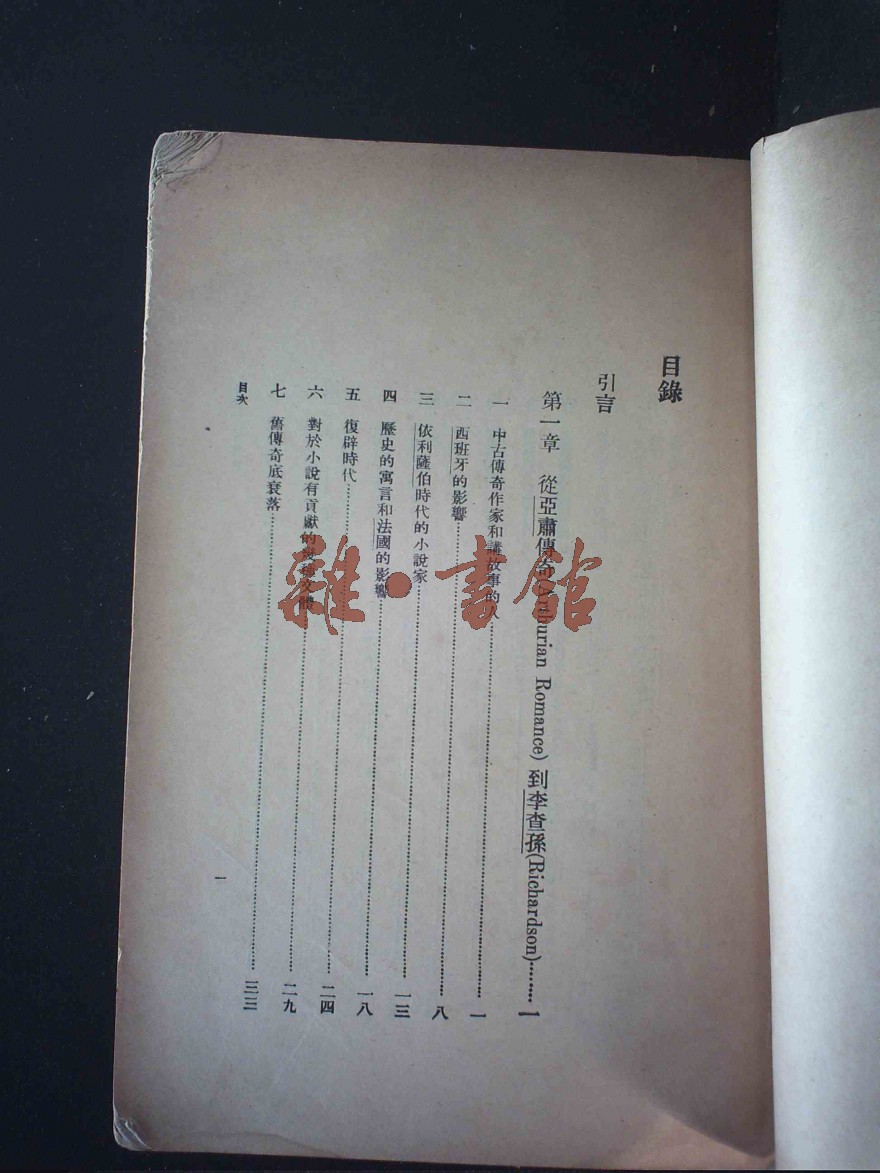 目錄
引言
第一章 從亞肅傳奇(Arthurian Romance) 到李查孫(Richardson)………1
一 中古傳奇作家和講故事的人………一
二 西班牙的影響………八
三 依利薩伯時代的小說家………一三
四 歷史的寓言和法國的影響………一八
五 復辟時代………二四
六 對於小說有貢獻的文體………二九
七 舊傳奇底衰落………三三
目次
一
雜·書館